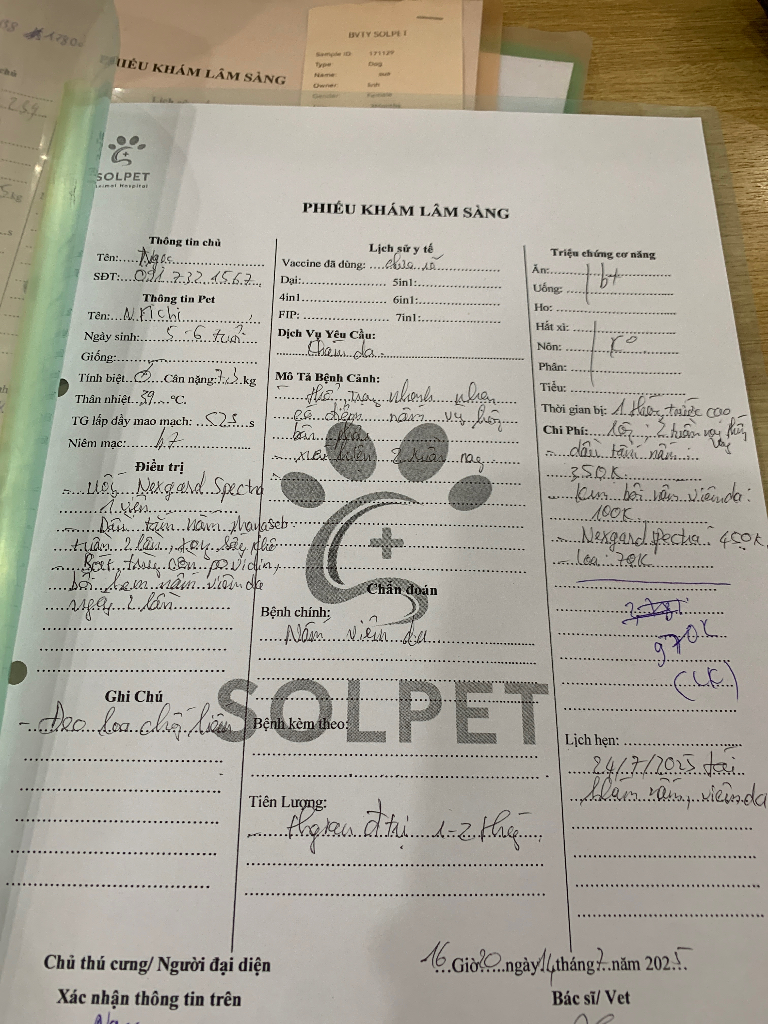 PHIẾU KHÁM LÂM SÀNG
BVTY SOLPET
Sample ID: 171129
Type: Dog
Name:
Owner:
SOLPET
Animal Hospital
PHIẾU KHÁM LÂM SÀNG
Thông tin chủ
Tên: Ngọc
SĐT: 091 732 1567
Thông tin Pet
Tên: Kichi
Ngày sinh: 5-6 tuổi
Giống:
Tính biệt Cân nặng: 7.3 kg
Thân nhiệt 39 °C.
TG lấp đầy mao mạch: ≤2s s
Niêm mạc: bt
Điều trị
- Uống Nexgard Spectra
1 viên
- Dầu tắm nấm
tuần 2 lần, sấy khô
povidin,
bôi kem nấm viêm da
ngày 2 lần
Ghi Chú
- Đeo loa chống liếm
Lịch sử y tế
Vaccine đã dùng: chưa rõ
Dại: 5in1:
4in1 6in1:
FIP: 7in1:
Dịch Vụ Yêu Cầu:
Khám da
Mô Tả Bệnh Cảnh:
- thể trạng nhanh nhẹn
có điểm nấm
- xuất hiện 2 tuần nay
Chẩn đoán
Bệnh chính:
Nấm viêm da
SOLPET
Bệnh kèm theo:
Tiên Lượng:
- thgian đtrị 1-2 thg
Triệu chứng cơ năng
Ăn:
Uống: bt
Ho:
Hắt xì:
Nôn: K°
Phân:
Tiểu:
Thời gian bị: 1 tháng trước cạo
Chi Phí: lông, 2 tuần nay
- dầu tắm nấm:
350K
- kem bôi nấm viêm da:
100K
- Nexgard spectra: 450K
- loa: 70K
970K
(CK)
Lịch hẹn:
24/7/2025 tái
khám nấm, viêm da
Chủ thú cưng/ Người đại diện
Xác nhận thông tin trên
16 Giờ 20 ngày 14 tháng 7 năm 2025
Bác sĩ/ Vet